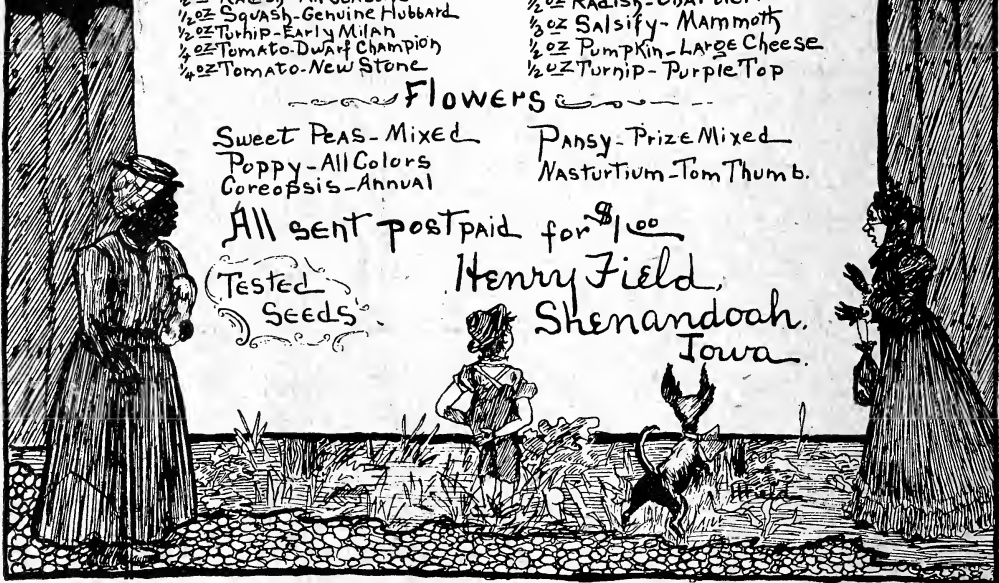 ½ oz Squash-Genuine Hubbard
½ oz Turnip-Early Milan
¼ oz Tomato-Dwarf Champion
¼ oz Tomato-New Stone
⅓ oz Salsify-Mammoth
½ oz Pumpkin-Large Cheese
½ oz Turnip-Purple Top
Flowers
Sweet Peas-Mixed
Poppy-All Colors
Coreopsis-Annual
Pansy-Prize Mixed
Nasturtium-Tom Thumb.
All sent postpaid for $1.00
Tested
Seeds
Henry Field,
Shenandoah.
Iowa.